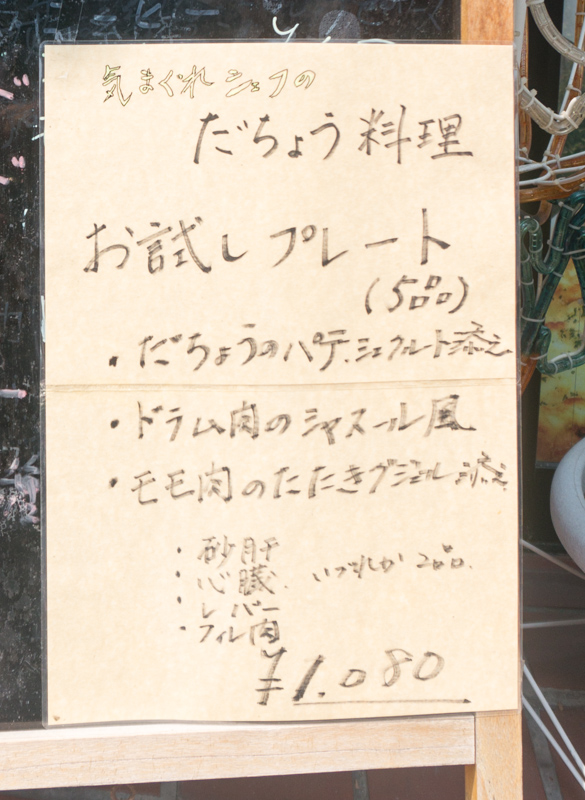 気まぐれシェフの
だちょう料理
お試しプレート
(5品)
・だちょうのパテ、シュクルト添え
・ドラム肉のシャスール風
・モモ肉のたたきグジェール添え
・砂肝
・心臓
・レバー
・フィレ肉
いづれか2品。
¥1.080